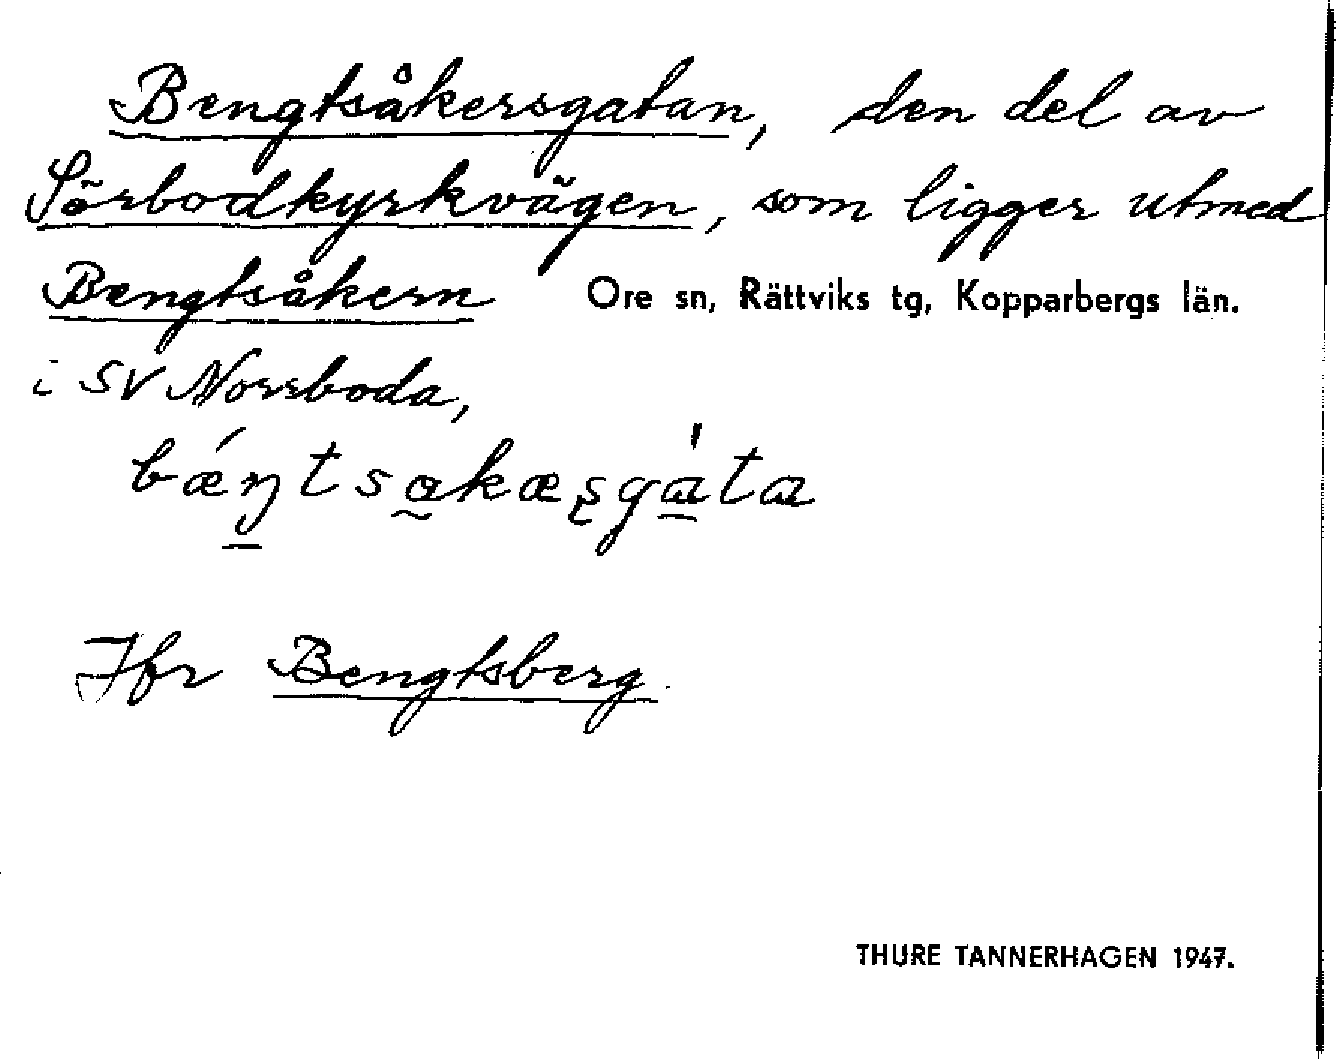 Bengtsåkersgatan, den del av
Sörbodkyrkvägen, som ligger utmed
Bengtsåkern Ore sn, Rättviks tg, Kopparbergs län.
i SV Norrboda,
bǽŋtsakæşga̍ta
Jfr Bengtsberg.
THURE TANNERHAGEN 1947.